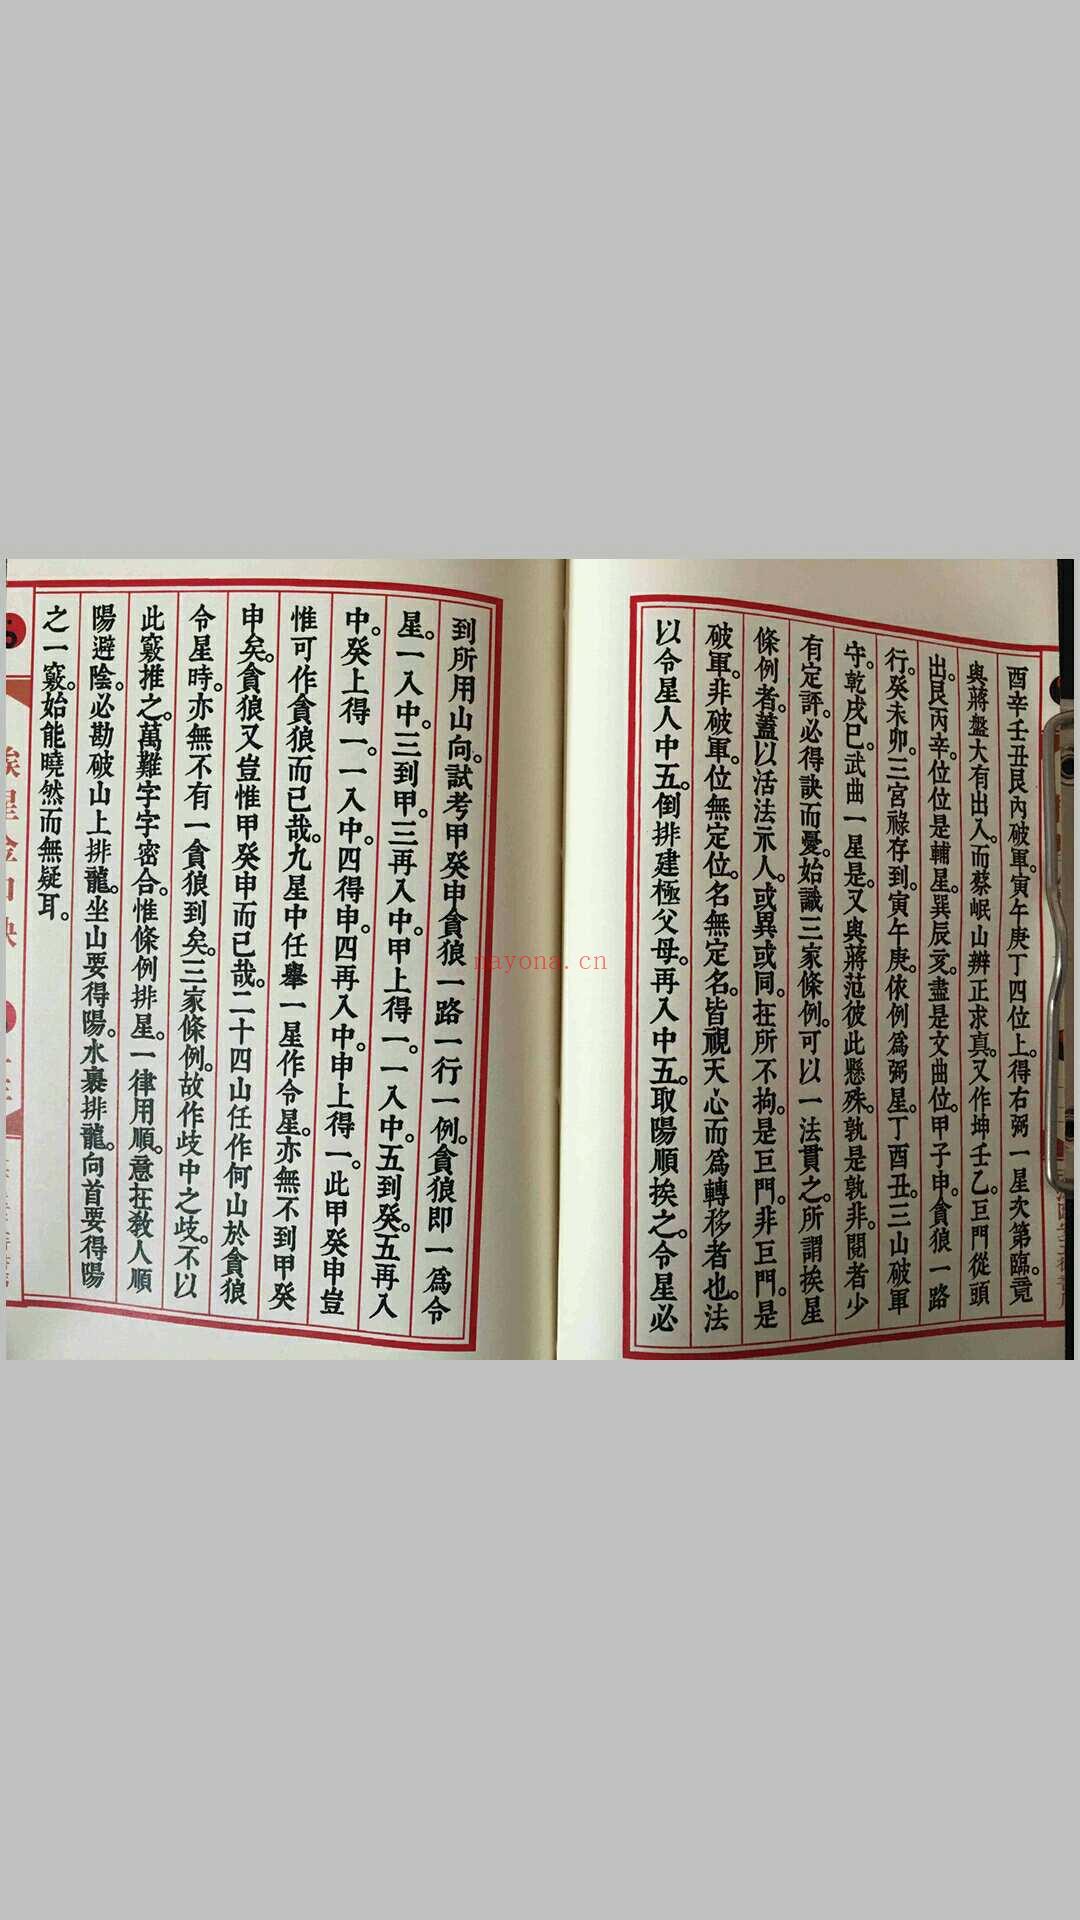 酉辛壬丑艮丙破軍。寅午庚丁四位上。得右弼一星次第臨。竟
與蔣盤大有出入。而蔡岷山辨正求真。又作坤壬乙。巨門從頭
出。艮丙辛。位位是輔星。巽辰亥。盡是文曲位。甲子申。貪狼一路
行。癸未卯。三宮祿存到。寅午庚。依例為弼星。丁酉丑。三山破軍
守。乾戌巳。武曲一星是。又與蔣范彼此懸殊。孰是孰非。閱者少
有定評。必得訣而憂。始識三家條例。可以一法貫之。所謂挨星
條例者。蓋以活法示人。或異或同。在所不拘。是巨門。非巨門。是
破軍。非破軍。位無定位。名無定名。皆視天心而為轉移者也。法
以令星人中五。倒排建極父母。再入中五。取陽順挨之。令星必
到所用山向。試考甲癸申貪狼一路一行一例。貪狼即一為令
星。一入中。三到甲。三再入中。甲上得一。一入中。五到癸。五再入
中。癸上得一。一入中。四得申。四再入中。申上得一。此甲癸申豈
惟可作貪狼而已哉。九星中任舉一星作令星。亦無不到甲癸
申矣。貪狼又豈惟甲癸申而已哉。二十四山任作何山於貪狼
令星時。亦無不有一貪狼到矣。三家條例。故作歧中之歧。不以
此竅推之。萬難字字密合。惟條例排星。一律用順。意在教人順
陽避陰。必勘破山上排龍。坐山要得陽。水裏排龍。向首要得陽
之一竅。始能曉然而無疑耳。
nayona.cn